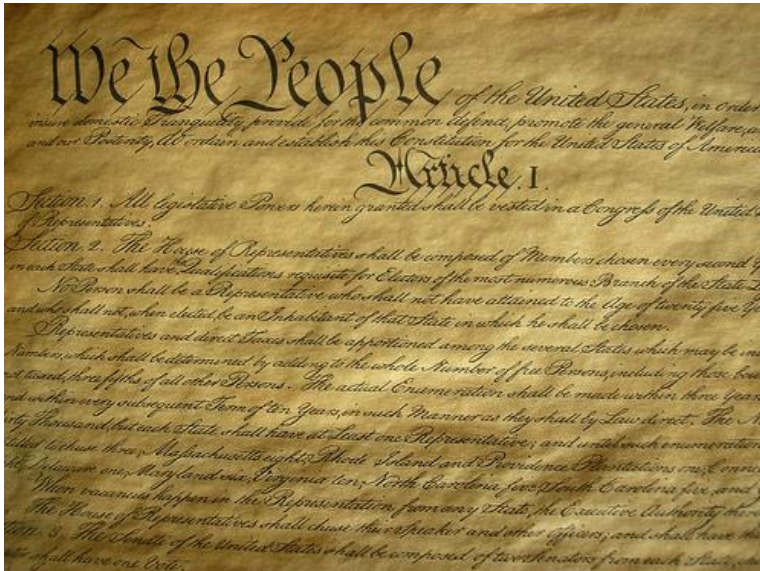 We the People of the United States, in Order
insure domestic Tranquility, provide for the common defence, promote the general Welfare, a
and our Posterity, do ordain and establish this Constitution for the United States of America
Article. I.
Section. 1. All legislative Powers herein granted shall be vested in a Congress of the United
of Representatives.
Section. 2. The House of Representatives shall be composed of Members chosen every second Y
in each State shall have Qualifications requisite for Electors of the most numerous Branch of the State
No Person shall be a Representative who shall not have attained to the Age of twenty five Y
and who shall not, when elected, be an Inhabitant of that State in which he shall be chosen.
Representatives and direct Taxes shall be apportioned among the several States which may be in
Numbers, which shall be determined by adding to the whole Number of free Persons, including those bou
not taxed, three fifths of all other Persons. The actual Enumeration shall be made within three Year
nd within every subsequent Term of ten Years, in such Manner as they shall by Law direct. The N
irty Thousand, but each State shall have at Least one Representative; and until such enumeration
titled to chuse three, Massachusetts eight, Rhode Island and Providence Plantations one, Connec
ht, Delaware one, Maryland six, Virginia ten, North Carolina five, South Carolina five, and
When vacancies happen in the Representation from any State, the Executive Authority there
The House of Representatives shall chuse their Speaker and other Officers; and shall have the
tion. 3. The Senate of the United States shall be composed of two Senators from each State,
ator shall have one Vote.